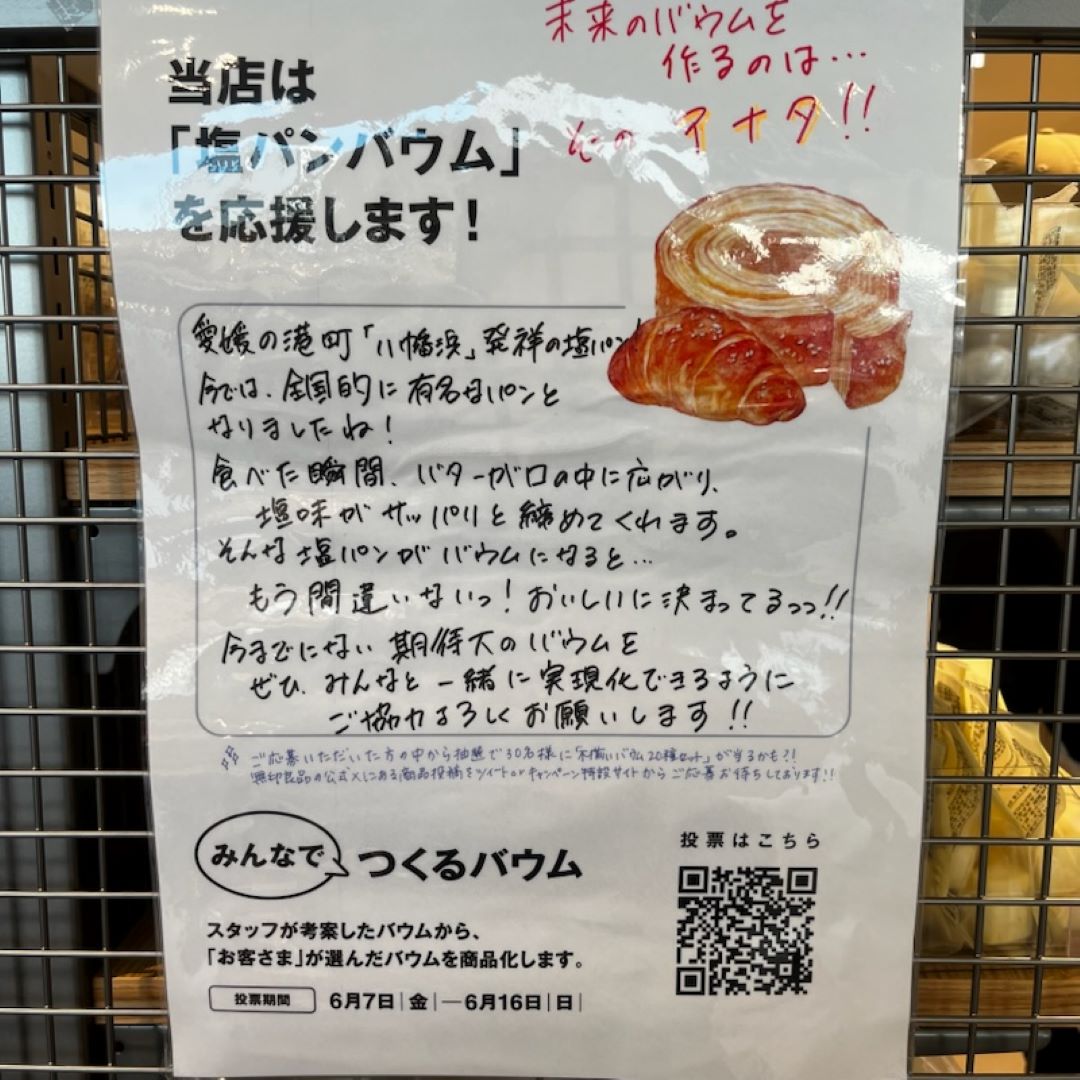 未来のバウムを
作るのは…
その アナタ!!
当店は
「塩パンバウム」
を応援します!
愛媛の港町「八幡浜」発祥の塩パン!
今では、全国的に有名なパンと
なりましたね!
食べた瞬間、バターが口の中に広がり、
塩味がサッパリと締めてくれます。
そんな塩パンがバウムになると…
もう間違いないっ!おいしいに決まってるっっ!!
今までにない期待大のバウムを
ぜひ、みんなと一緒に実現化できるように
ご協力よろしくお願いします!!
ご応募いただいた方の中から抽選で30名様に「不揃いバウム20種セット」が当るかも?!
無印良品の公式Xにある商品投稿をツイートorキャンペーン特設サイトからご応募お待ちしております!!
みんなで つくるバウム
スタッフが考案したバウムから、
「お客さま」が選んだバウムを商品化します。
投票期間 6月7日|金|—6月16日|日|
投票はこちら